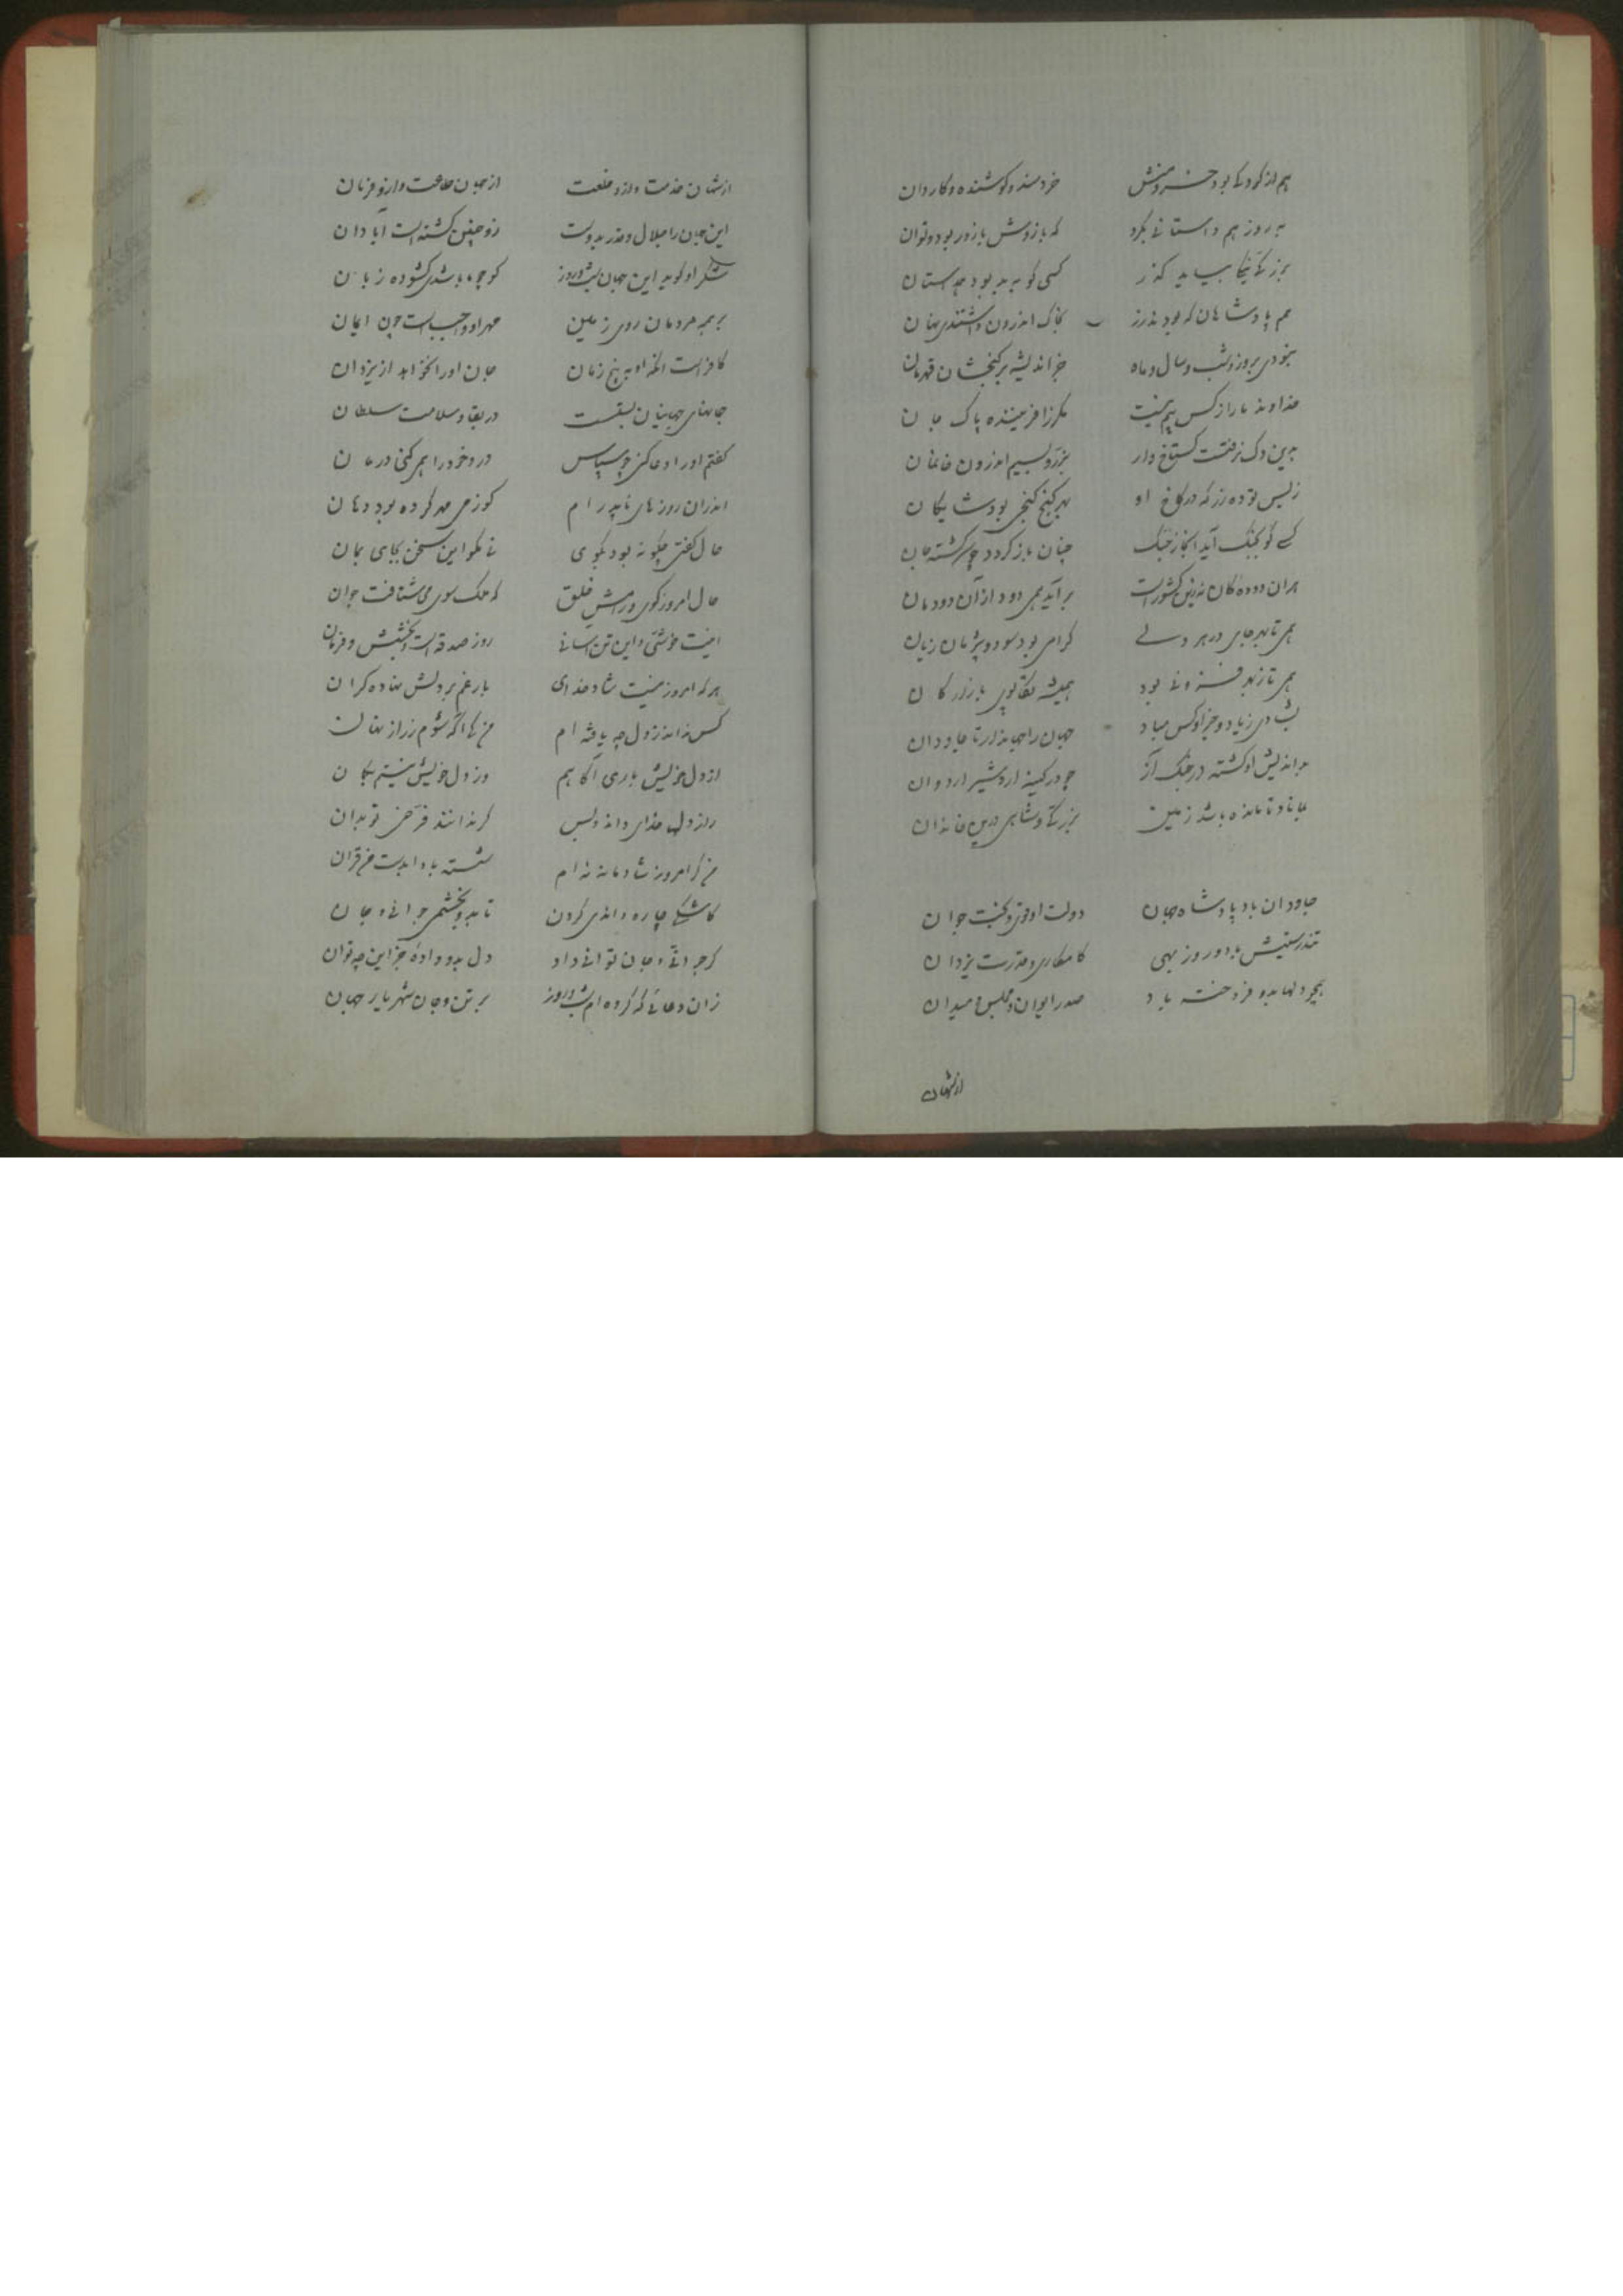 هم از کودکی بود خسرو منش    خردمند و کوشنده و کاردان
به روز هم داستانی بکرد    که بازوش با زور بود و توان
بزرگی نیکا بیاید گذر    کسی کو به بد بود همداستان
هم پادشاهان که بودند زر    بخاک اندرون داشتندی نهان
نبودی بروز و شب و سال و ماه    جز اندیشه بر گنجشان قهرمان
خداوند ما را ز کس بیم نیست    مگر ز آفریننده پاک جان
بدین دل گرفتست گستاخ وار    بزر و بسیم اندرون خانمان
ز بس توده زر که در کاخ او    بهر کنج گنجی بود شایگان
کسی کو بجنگ آید آنجا ز جنگ    چنان بازگردد که سرگشته جان
هر آن دوده کان نه زین کشورست    برآید همی دود از آن دودمان
همی تا بهر جای در هر دلی    گرامی بود سود و پژمان زیان
همی تا زبهر فزونی بود    همیشه تکاپوی بازارگان
بشادی زیاد و جز او کس مباد    جهان را جهاندار تا جاودان
بداندیش او کشته در جنگ او    چو در کینه اردشیر اردوان
بماناد تا مانده باشد زمین    بزرگی و شاهی درین خاندان
جاودان باد پادشاه جهان    دولت او قوی و بخت جوان
تندرستیش باد و روز بهی    کامکاری و قدرت یزدان
همچو دلها بدو فروخته باد    صدر ایوان و مجلس و میدان
ازشهان
ازشهان خدمت و ازو خلعت    از جهان طاعت و ازو فرمان
این جهان را بجلال و قدر بدوست    زو چنین گشته است آبادان
شکر او گوید این جهان شب و روز    گو چو ما باشدی گشوده زبان
بر همه مردمان روی زمین    مهر او واجبست چون ایمان
کافرست آنکه او به پنج زمان    جان او را نخواهد از یزدان
جانهای جهانیان بستست    در بقا و سلامت سلطان
گفتم او را دعا کنی چو سپاس    درد خود را همی کنی درمان
اندران روزهای نابدرام    کو ز می مهر کرده بود دهان
حال گفتی چگونه بود بگوی    نی مگو این سخن بجای بمان
حال امروز گوی و رامش خلق    که ملک سوی می شتافت جوان
اینت خوشی و این تن آسانی    روز صدقه است و بخشش و قربان
هر که امروز نیست شاد خدای    بار غم بر دلش نهاده گران
کس نداند ز دل چه یافته ام    من که آگه شوم ز راز نهانست
از دل خویش باری آگاهم    وز دل خویش نیستم بگمان
راز دل خدای داند و بس    گر ندانند فرخی تو بدان
من که امروز شادمانه نه ام    شسته بادا بدست من قرآن
کاشکی چاره دانمی کردن    تا بدو بخشمی جوانی و جان
گر جوانی و جان توانی داد    دل بدو داده جز این چه توان
زان دعائی که کرده ام شب و روز    بر تن و جان شهریار جهان